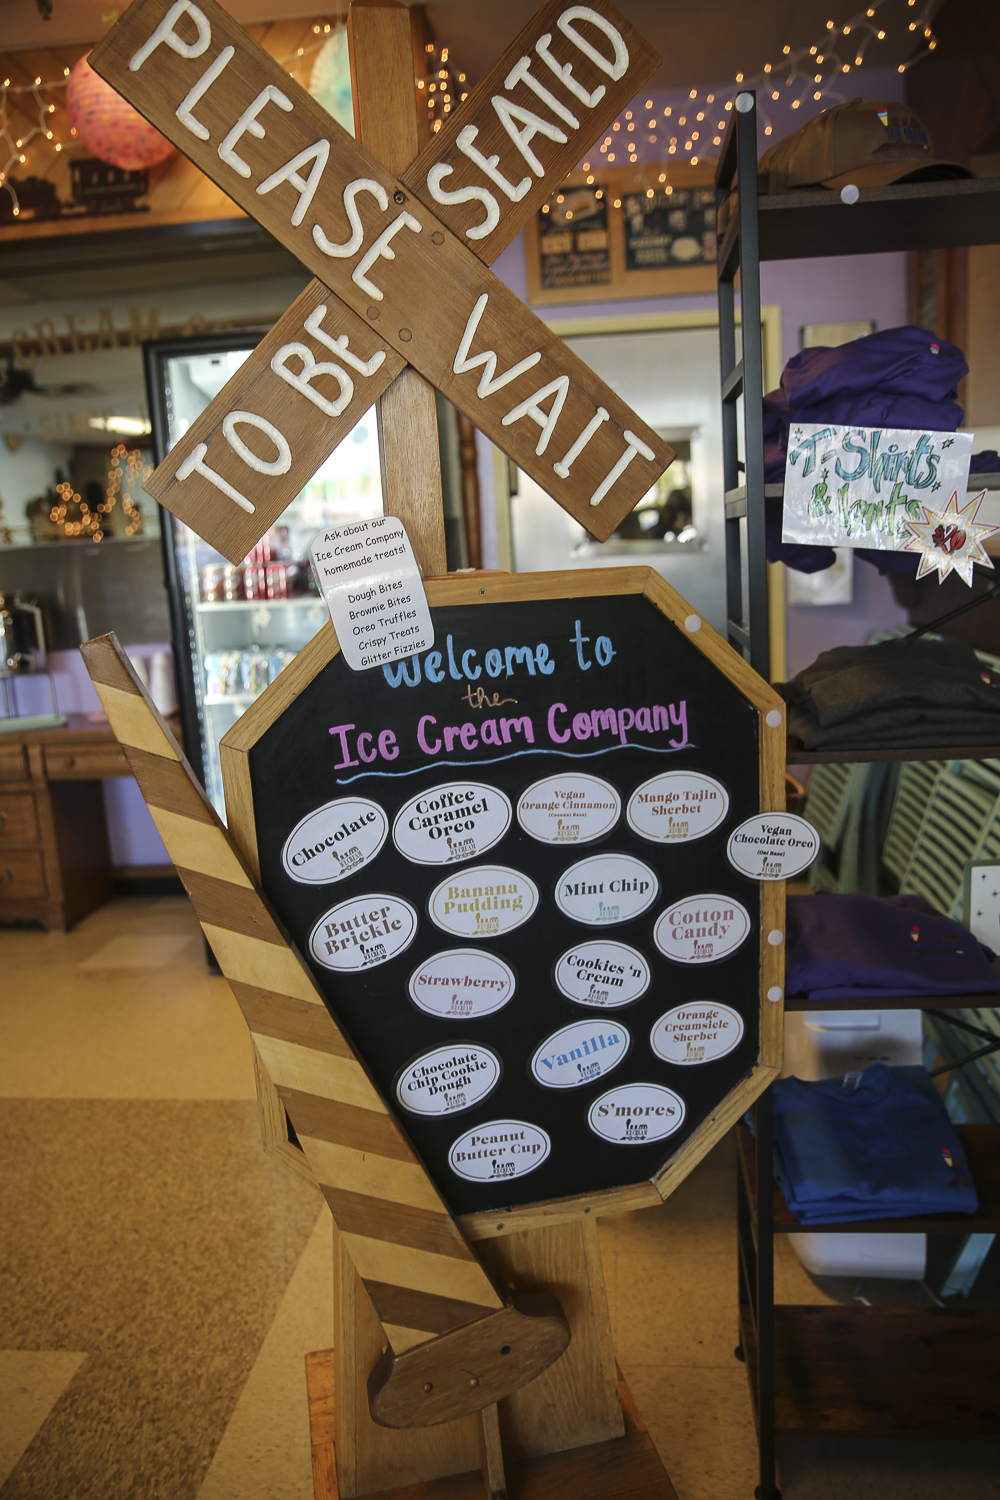 PLEASE WAIT
TO BE SEATED
Ask about our
Ice Cream Company
homemade treats!
Dough Bites
Brownie Bites
Oreo Truffles
Crispy Treats
Glitter Fizzies
Welcome to
the
Ice Cream Company
Chocolate
Coffee
Caramel
Oreo
Vegan
Orange Cinnamon
(Coconut Base)
Mango Tajin
Sherbet
Vegan
Chocolate Oreo
(Oat Base)
Butter
Brickle
Banana
Pudding
Mint Chip
Cotton
Candy
Strawberry
Cookies 'n
Cream
Orange
Creamsicle
Sherbet
Chocolate
Chip Cookie
Dough
Vanilla
S'mores
Peanut
Butter Cup
T-Shirts
&
$20
CREAM